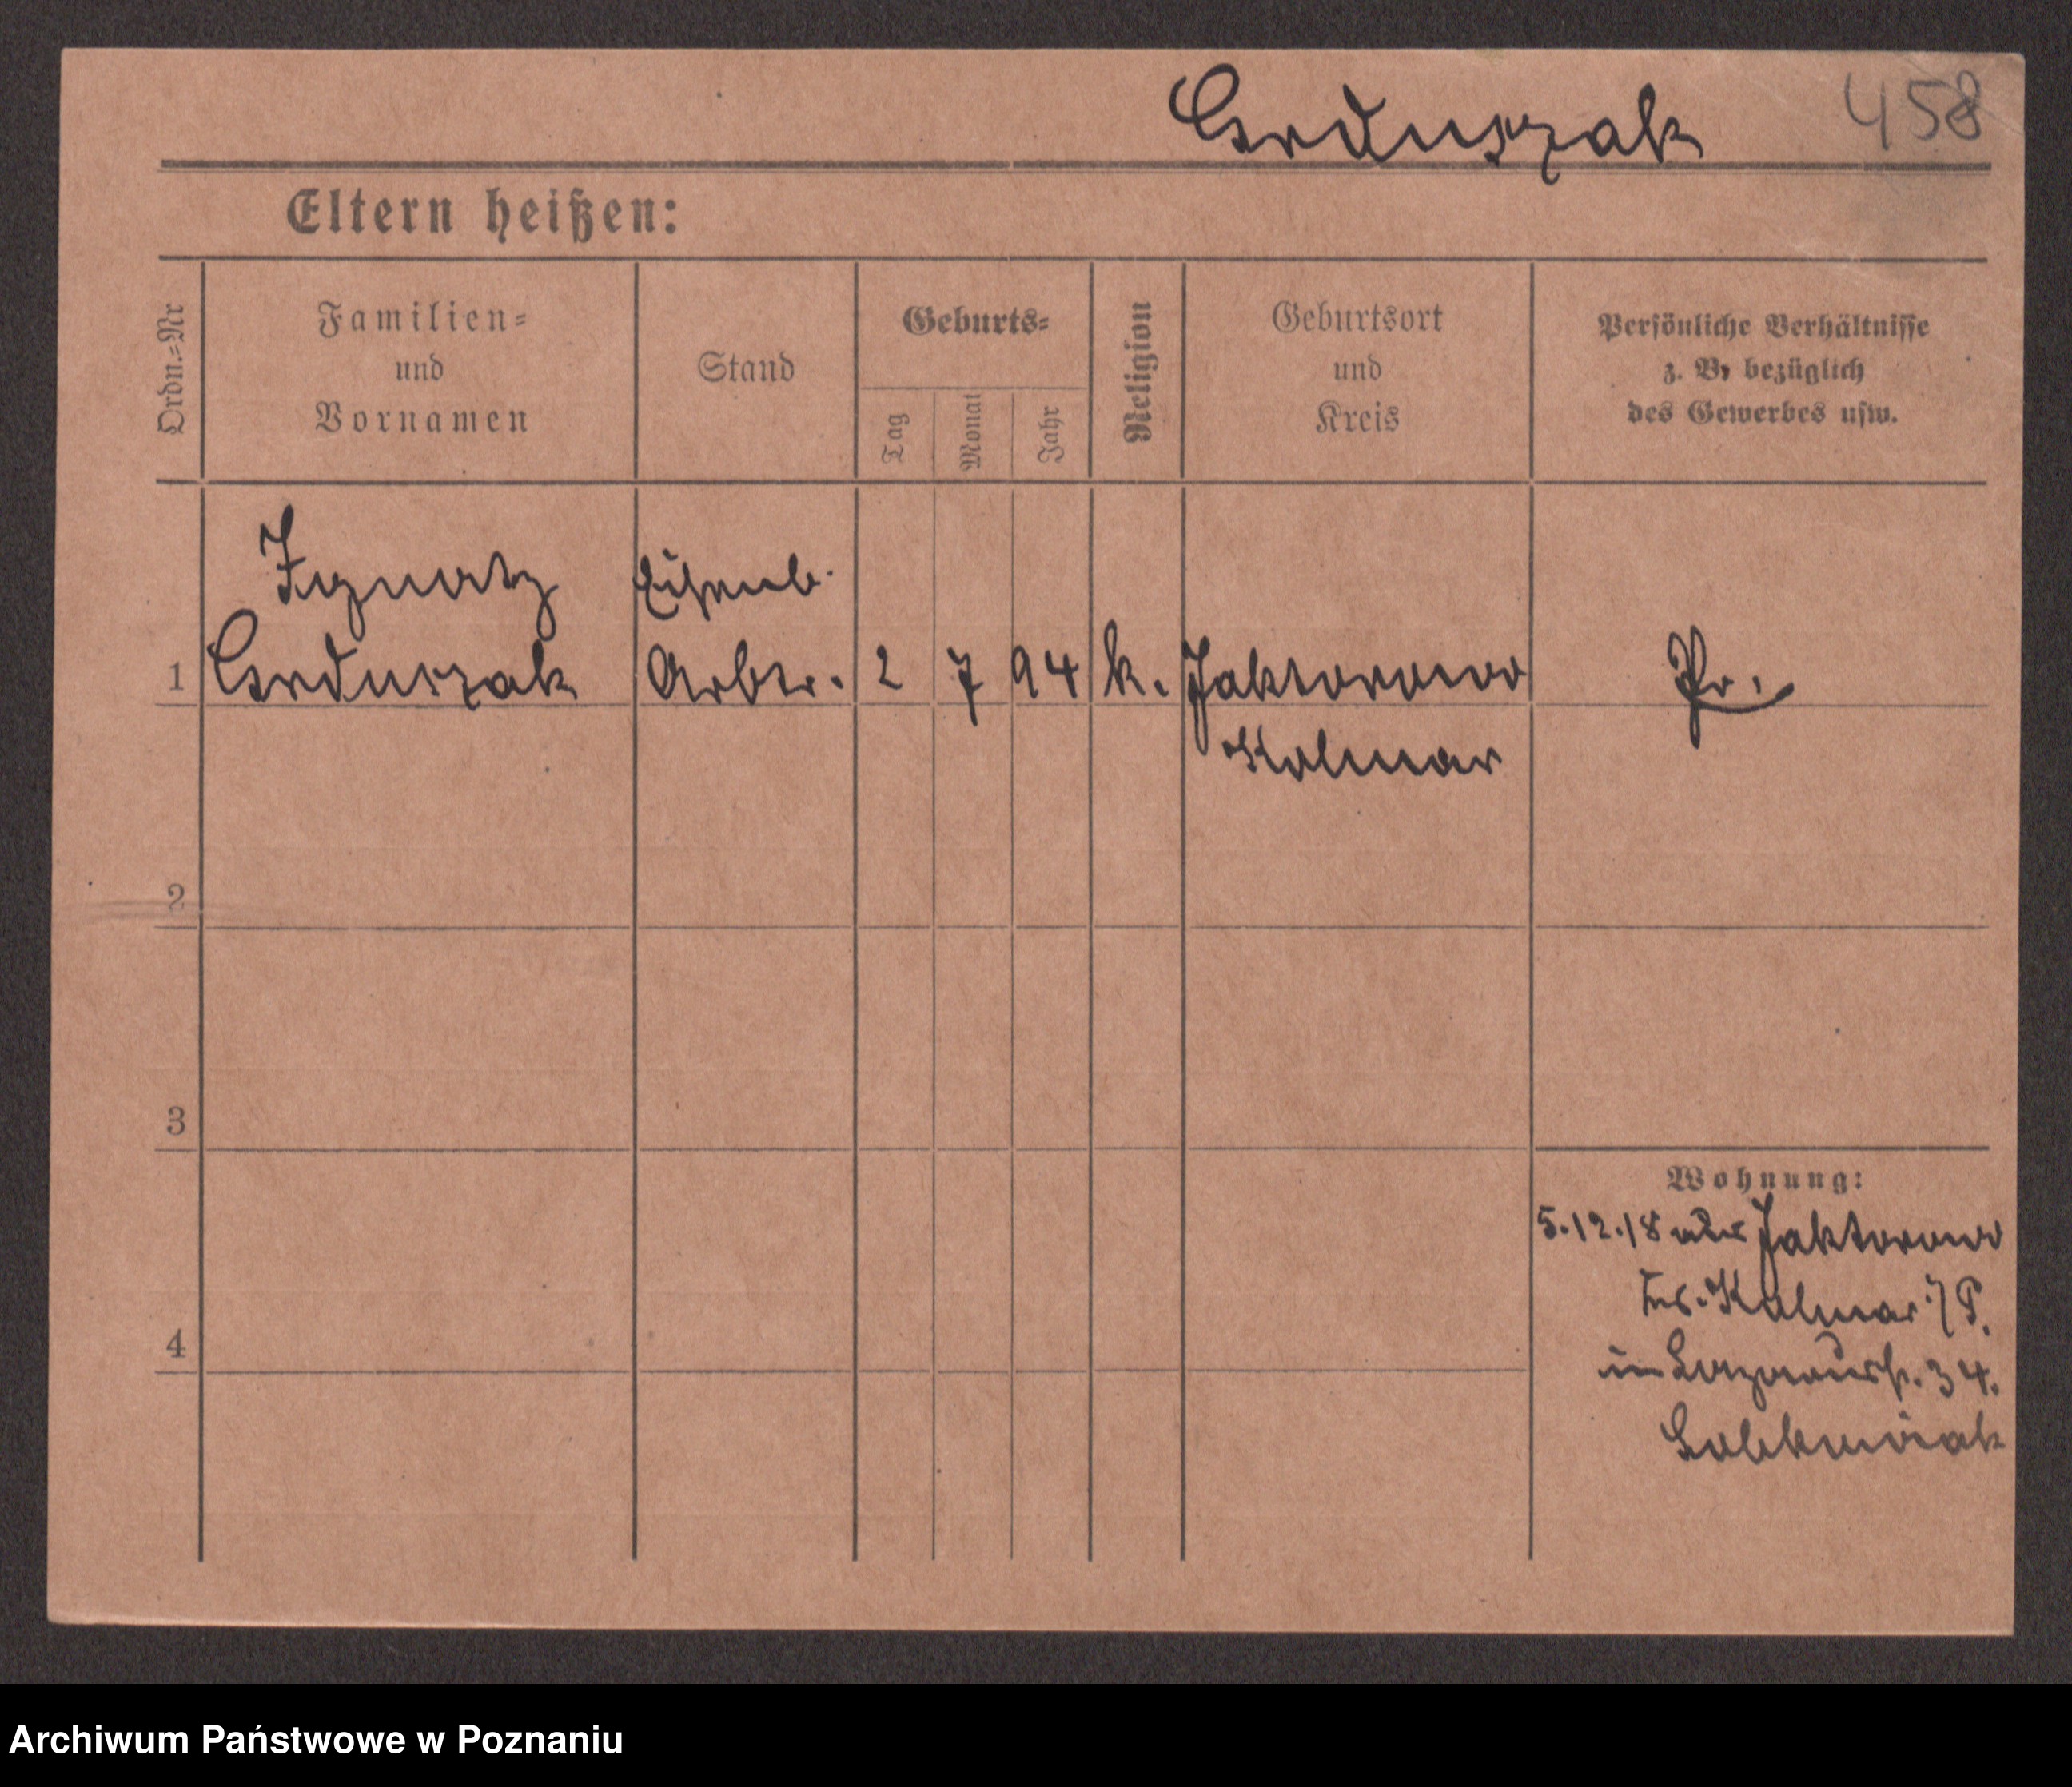 Grduszak 458
Eltern heißen:
Ordn.=Nr
Familien=
und
Vornamen
Stand
Geburts=
Tag
Monat
Jahr
Religion
Geburtsort
und
Kreis
Persönliche Verhältnisse
z. B. bezüglich
des Gewerbes usw.
Ignatz Eisenb.
1 Grduszak Arbtr. 2 7 94 k. Jaktorowo Pr.
Kolmar
2
3
4
Wohnung:
5.12.18 aus Jaktorowo
Krs. Kolmar i/P.
in 34.
Archiwum Państwowe w Poznaniu